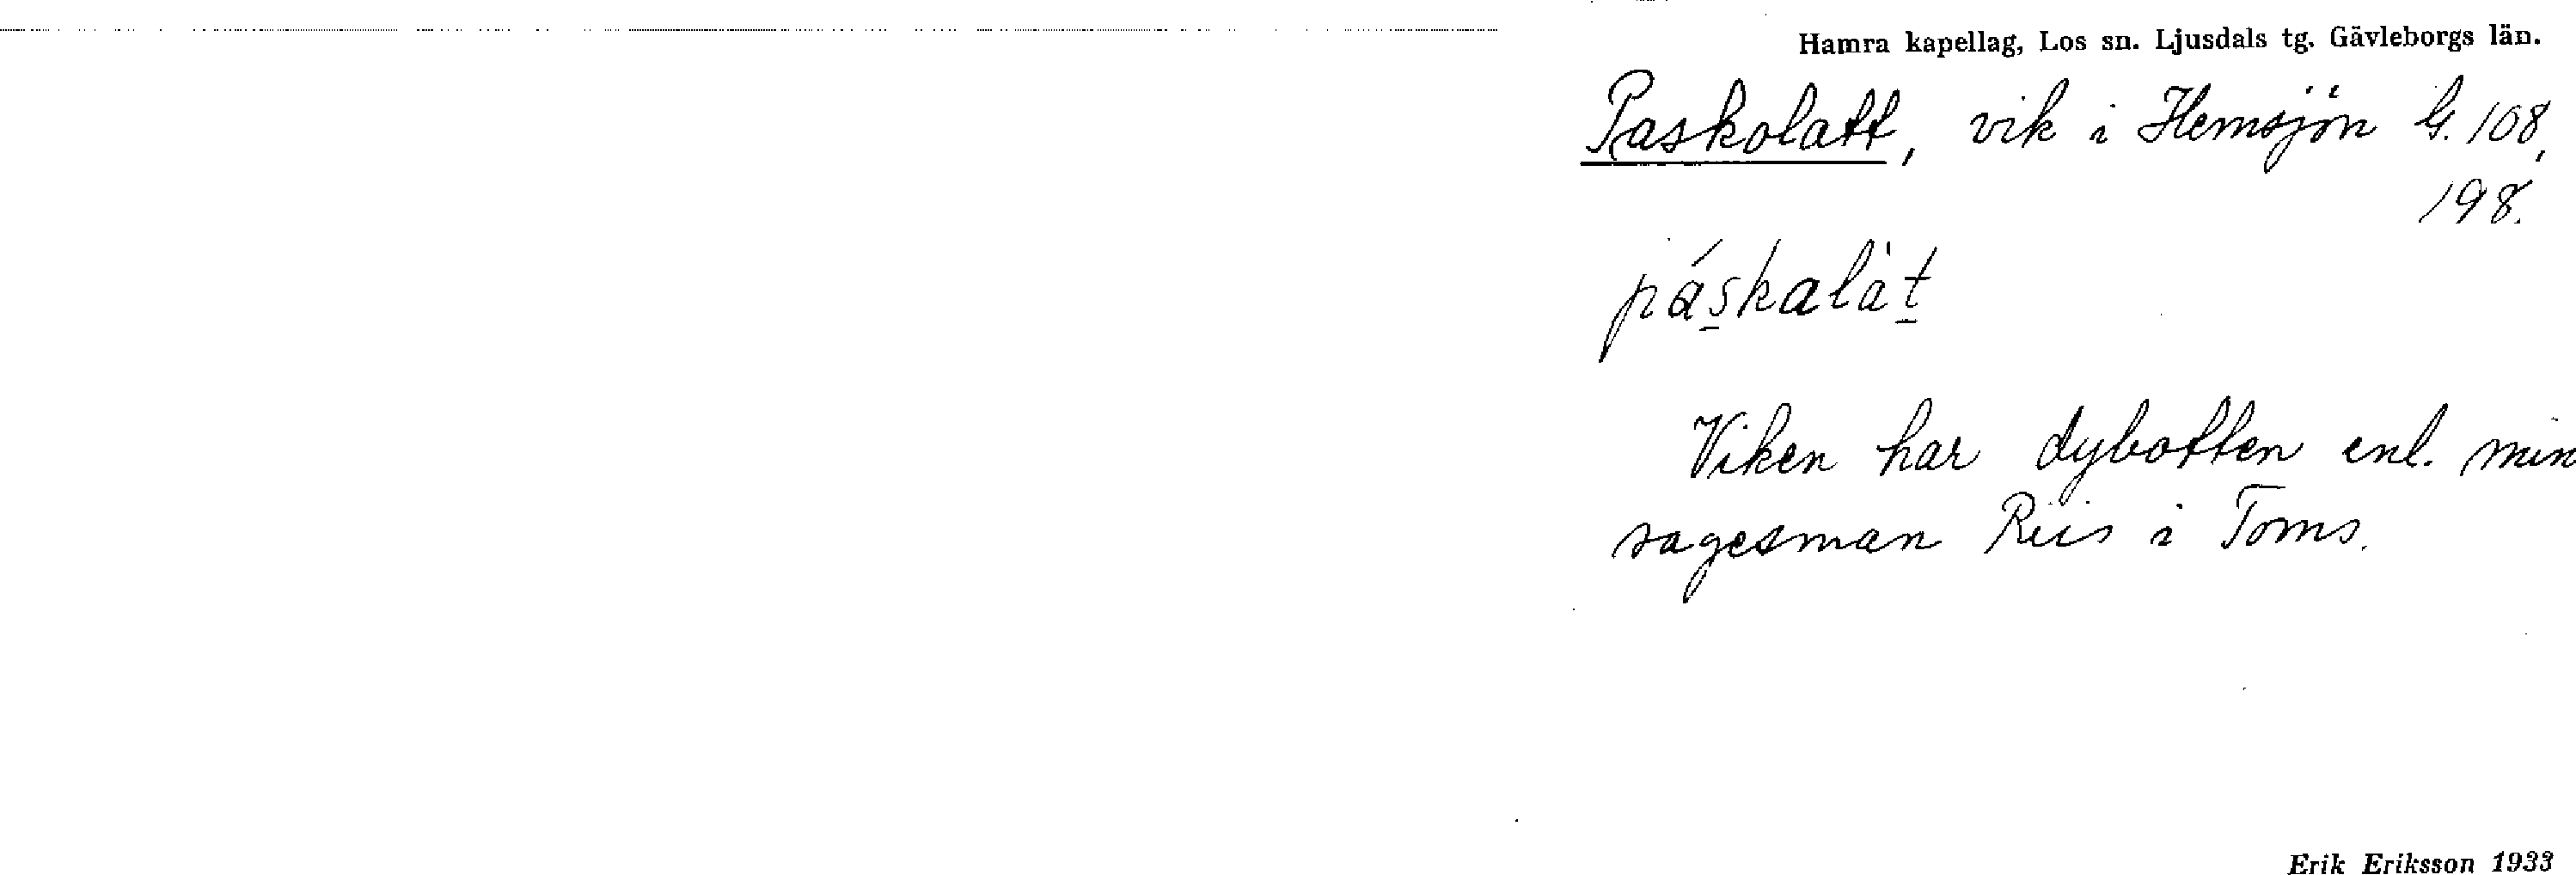 Hamra kapellag, Los sn. Ljusdals tg. Gävleborgs län.
Paskolatt, vik i Hemsjön G. 108,
198.
páskalàt
Viken har dybotten enl. min
sagesman Riis i Toms.
Erik Eriksson 1933